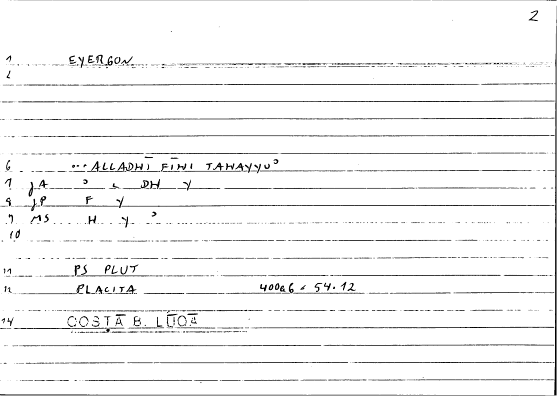 2
1 EYERGON
2
6 ...ALLADHĪ FĪHI TAHAYYUʾ
7 JA ʾ L DH Y
8 JP F Y
9 MS H Y ʾ
10
11 PS PLUT
12 PLACITA 400a6 = 54.12
14 COSTĀ B. LŪQĀ